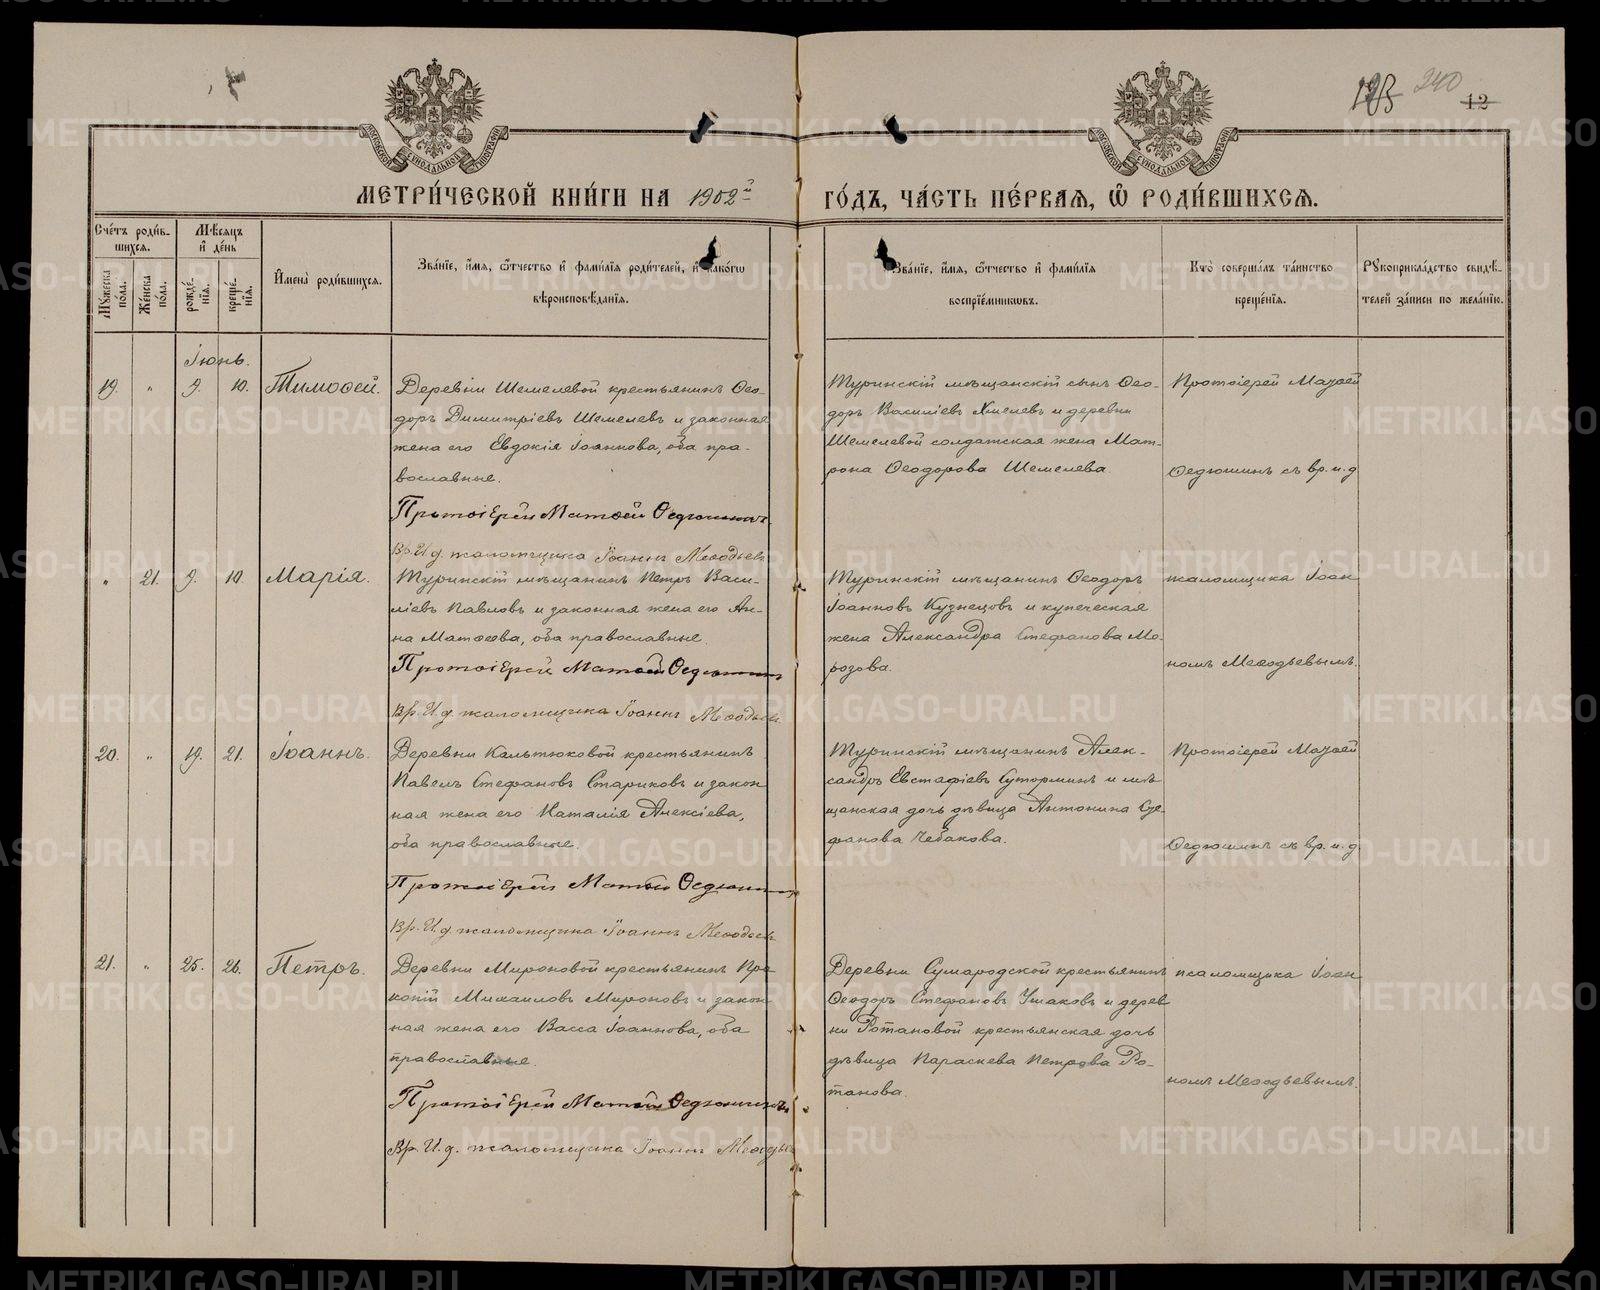 240
12
МОСКОВСКОЙ СУНОДАЛЬНОЙ ТИПОГРАФІИ
МОСКОВСКОЙ СУНОДАЛЬНОЙ ТИПОГРАФІИ
МЕТРИ́ЧЕСКОЙ КНИ́ГИ НА 1902й ГО́ДЪ, ЧА́СТЬ ПЕ́РВАѦ, Ѡ҆ РОДИ́ВШИХСѦ.
Сче́тъ роди́в-
шихсѧ.
Мꙋ́жеска по́ла.
Же́нска по́ла.
Мѣ́сѧцъ
и҆ де́нь
рожде́-нїѧ.
креще́-нїѧ.
И҆мена̀ роди́вшихсѧ.
Зва́нїе, и҆́мѧ, ѻ҆́тчество и҆ фами́лїѧ роди́телей, и҆ како́гѡ
вѣроисповѣ́данїѧ.
Зва́нїе, и҆́мѧ, ѻ҆́тчество и҆ фами́лїѧ
воспрїе́мникѡвъ.
Кто̀ соверша́лъ та́инство
креще́нїѧ.
Рꙋкоприкла́дство свидѣ́-
телей за́писи по жела́нїю.
Іюнь.
19. „ 9. 10. Тимоѳей.
Деревни Шемелевой крестьянинъ Ѳео-
доръ Димитріевъ Шемелевъ и законная
жена его Евдокія Іоаннова, оба пра-
вославные.
Протоіерей Матѳей Ѳедюшинъ
Вр. И. д. псаломщика Іоаннъ Меѳодьевъ
Туринскій мѣщанскій сынъ Ѳео-
доръ Василіевъ Хмелевъ и деревни
Шемелевой солдатская жена Мат-
рона Ѳеодорова Шемелева
Протоіерей Маѳѳей
Ѳедюшинъ съ вр. и. д.
„ 21. 9. 10. Марія.
Туринскій мѣщанинъ Петръ Васи-
ліевъ Павловъ и законная жена его Ан-
на Матѳеева, оба православные.
Протоіерей Матѳей Ѳедюшинъ
Вр. И. д. псаломщика Іоаннъ Меѳодьевъ
Туринскій мѣщанинъ Ѳеодоръ
Іоанновъ Кузнецовъ и купеческая
жена Александра Стефанова Мо-
розова.
псаломщика Іоан
номъ Меѳодьевымъ.
20. „ 19. 21. Іоаннъ.
Деревни Кальтюковой крестьянинъ
Павелъ Стефановъ Стариковъ и закон
ная жена его Наталія Алексіева,
оба православные.
Протоіерей Матѳей Ѳедюшинъ
Вр. И. д. псаломщика Іоаннъ Меѳодьевъ
Туринскій мѣщанинъ Алек-
сандръ Евстафіевъ Суторминъ и мѣ-
щанская дочь дѣвица Антонина Сте-
фанова Чебакова.
Протоіерей Маѳѳей
Ѳедюшинъ съ вр. и. д.
21. „ 25. 26. Петръ.
Деревни Мироновой крестьянинъ Про
копій Михаиловъ Мироновъ и закон
ная жена его Васса Іоаннова, оба
православные.
Протоіерей Матѳей Ѳедюшинъ
Вр. И. д. псаломщика Іоаннъ Меѳодьевъ
Деревни Сумародской крестьянинъ
Ѳеодоръ Стефановъ Ушаковъ и дерев
ни Ротановой крестьянская дочь
дѣвица Параскева Петрова Ро-
танова.
псаломщика Іоан
номъ Меѳодьевымъ.
METRIKI.GASO-URAL.RU